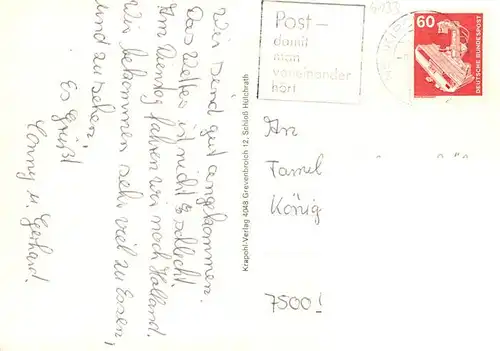 Wir sind gut angekommen.
Das Wetter ist nicht so schlecht.
Am Dienstag fahren wir nach Holland.
Wir bekommen sehr viel zu Essen,
und zu sehen.
Es Grüßt
Conny u. Gerhard.
Krapohl-Verlag 4048 Grevenbroich 12, Schloß Hülchrath
Post –
damit
man
voneinander
hört
60
DEUTSCHE BUNDESPOST
An
König
7500!